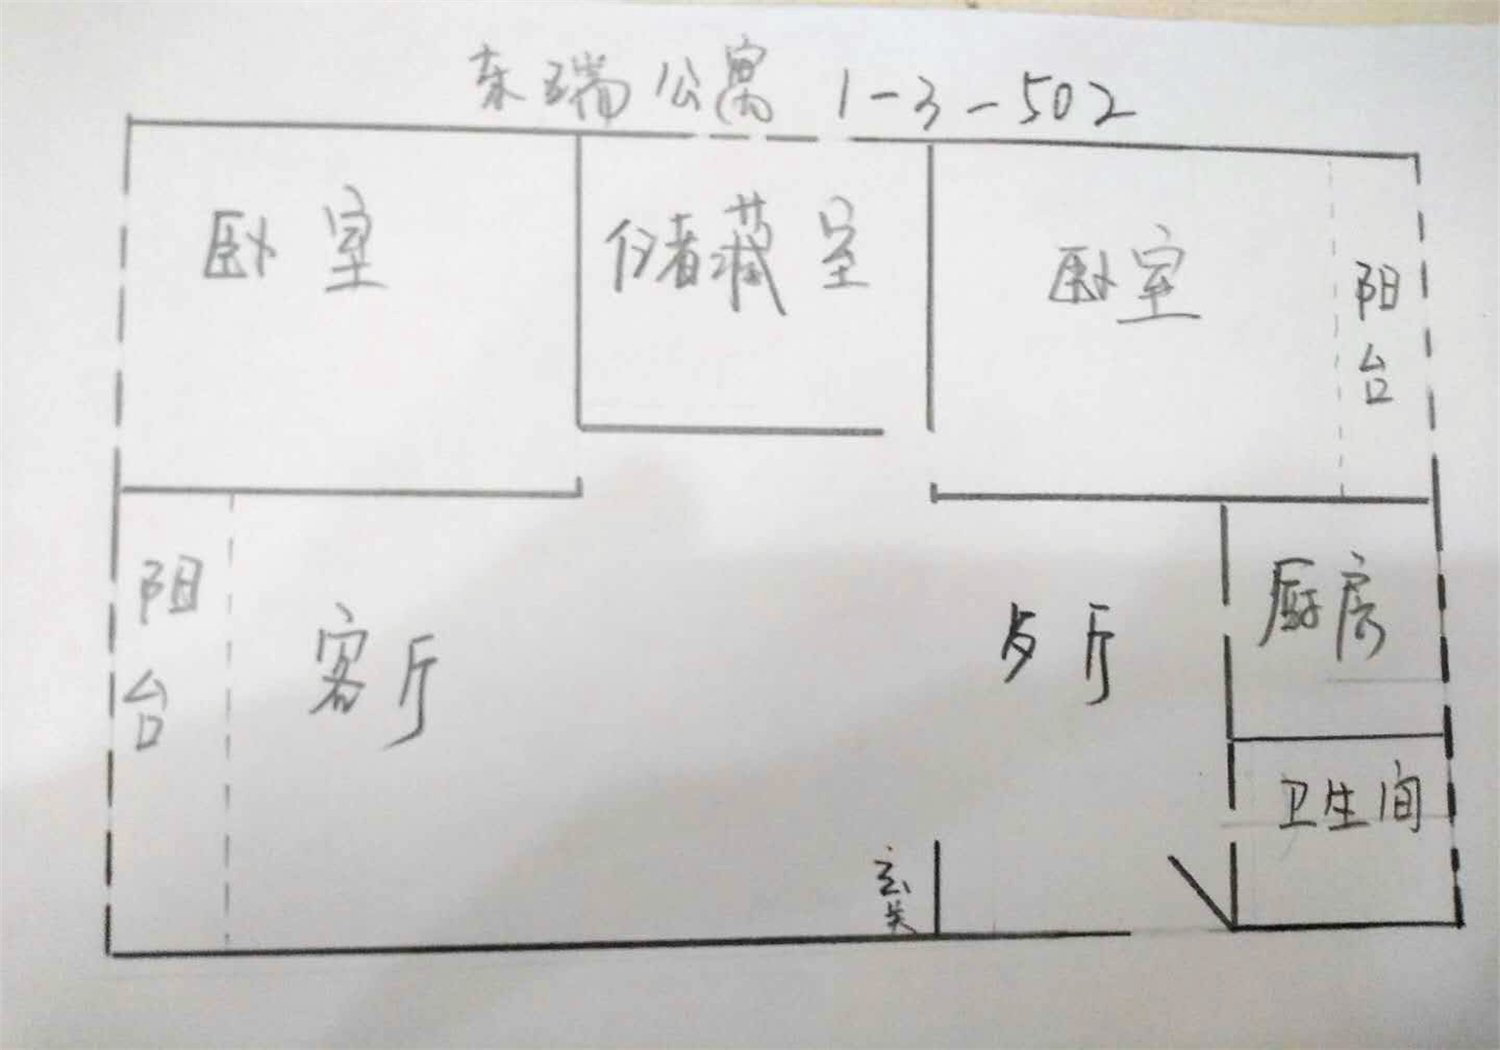 东瑞公寓 1-3-502
卧室
储藏室
卧室
阳台
阳台
客厅
厨房
卫生间
玄关